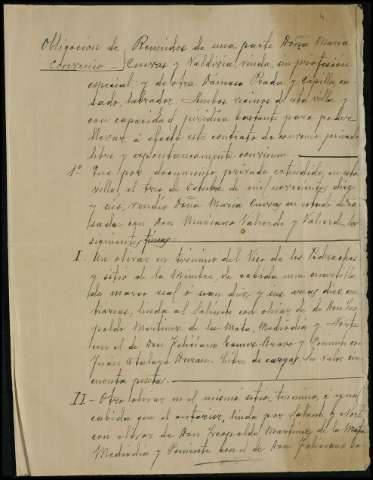 Obligación de Reunidos de una parte Doña María
convenio Cuevas y Valdivia, viuda, sin profesion
especial: y de otra Dámaso Prada y Capilla, ca-
sado, labrador. Ambos vecinos de esta villa y
con capacidad jurídica bastante para poder
llevar á efecto este contrato de convenio privado
libre y espontaneamente convienen.
1º Que por documento privado estendido en esta
villa el tres de Octubre de mil novecientos diez
y seis, vendio Doña María Cuevas en estado de ca-
sada con Don Mariano
siguientes fincas
I. Un olivar en término del Viso de los Pedroches
y sitio de la de cabida una cuartilla
de marco real ó sean diez y seis areas diez cen-
tiareas, linda al Saliente con olivar de Don Leo-
poldo Martinez de la Mata, Mediodia y Norte
con el de Don Feliciano Gomez Bravo y Poniente con
Juan Duran. Libre de cargas. Su valor cin-
cuenta pesetas.
II - Otro olivar en el mismo sitio, término é igual
cabida que el anterior, linda por Saliente y Norte
con olivar de Don Leopoldo Martinez de la Mata
Mediodia y Poniente con el de Don Feliciano